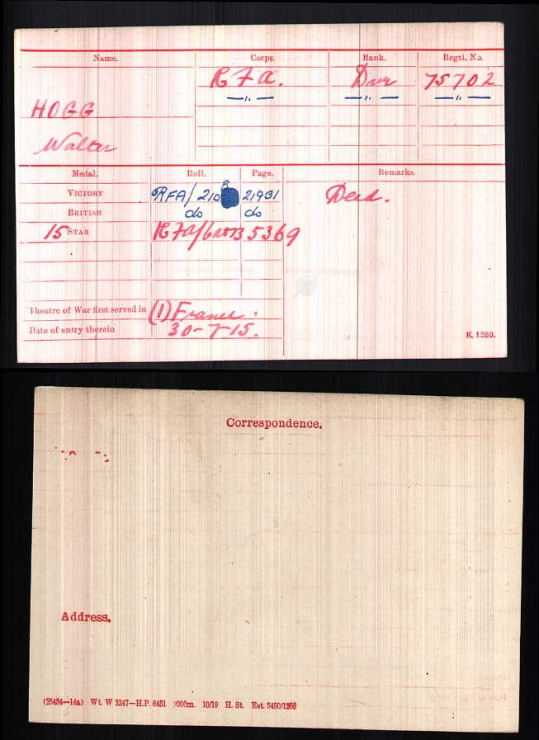 Name. Corps. Rank. Regtl. No.
R F A. Dvr 75702
—〃— —〃— —〃—
HOGG
Walter
Medal. Roll. Page. Remarks.
VICTORY RFA/210 21931 Dead.
BRITISH do do
15 STAR RFA/ 5369
Theatre of War first served in (1) France.
Date of entry therein 30-7-15.
K. 1380.
Correspondence.
Address.
Wt. W 5247—H.P. 6451 2000m. 10/19 H. St. Est. 5400/1266